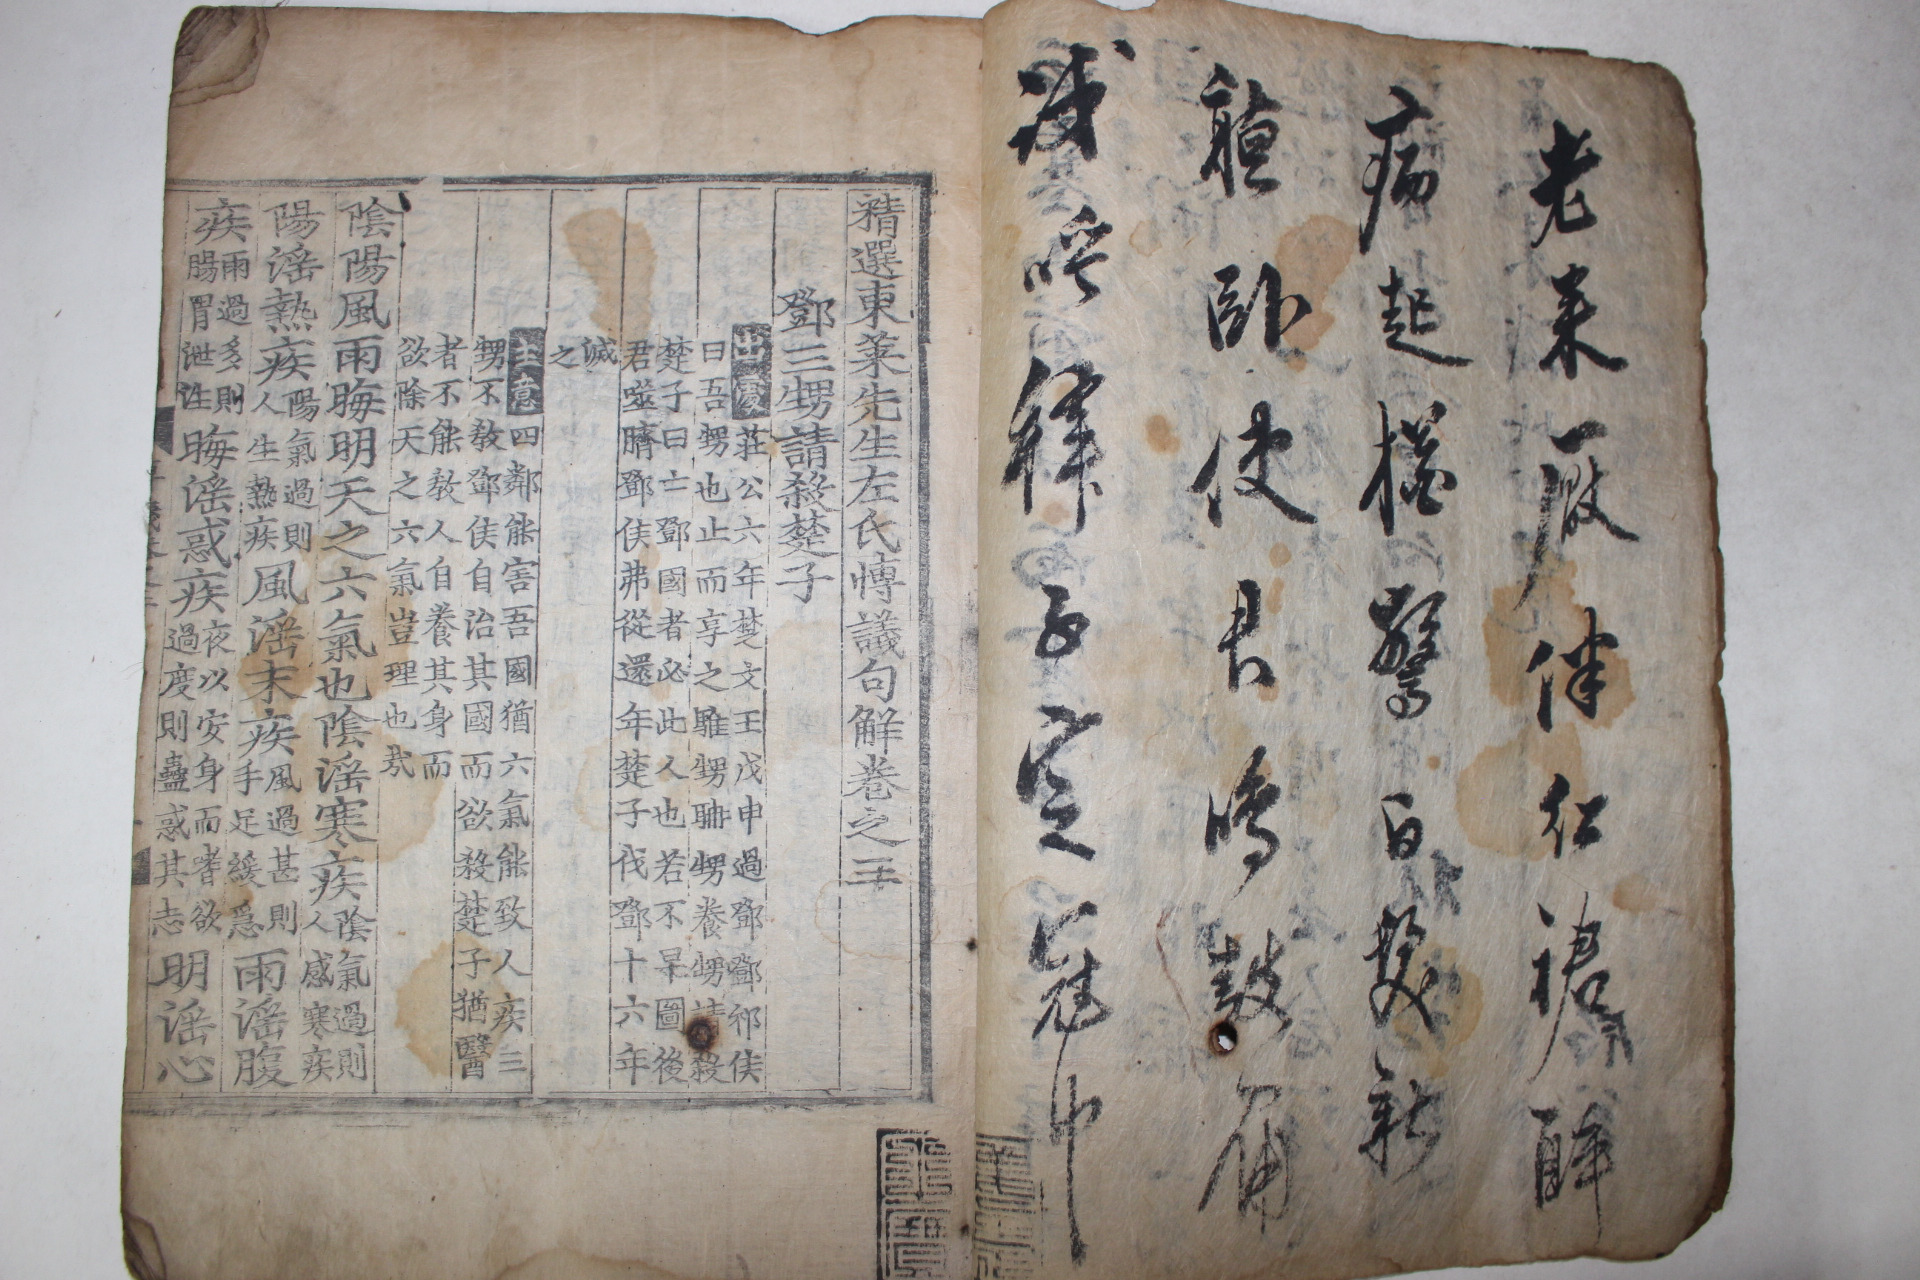 老來一伴仁裙醉
病起驚白髮新
聽臥使君鳴鼓角
試呼穉子冠巾
精選東萊先生左氏愽議句解卷之三
鄧三甥請殺楚子
出處莊公六年楚文王戊申過鄧鄧祁侯
曰吾甥也止而享之騅甥聃甥養甥請殺
楚子曰亡鄧國者必此人也若不早圖後
君噬臍鄧侯弗從還年楚子伐鄧十六年
滅
之
主意四鄰能害吾國猶六氣能致人疾三
甥不敎鄧侯自治其國而欲殺楚子猶醫
者不能敎人自養其身而
欲除天之六氣豈理也㦲
陰陽風雨晦明天之六氣也陰淫寒疾陰氣過則人感寒疾
陽淫熱疾陽氣過則人生熱疾風淫末疾風過甚則手足緩急雨淫腹
疾雨過多則腸胃泄注晦淫惑疾夜以安身而嗜欲過度則蠱惑其志明淫心